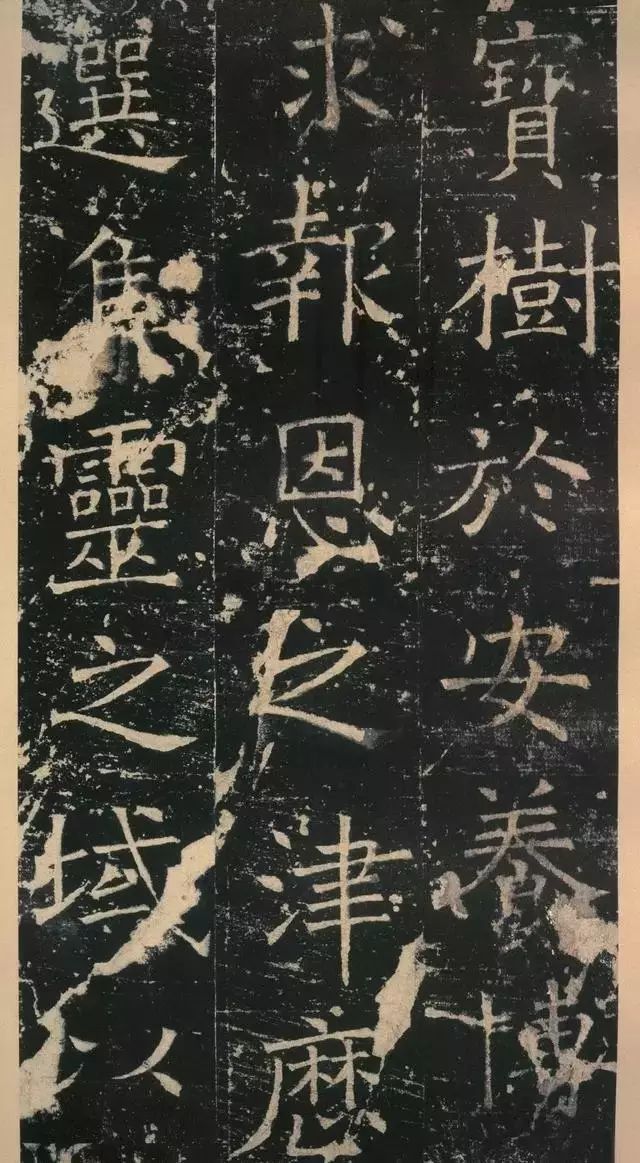 寶樹於安養博
求報恩之津歷
選集靈之域以